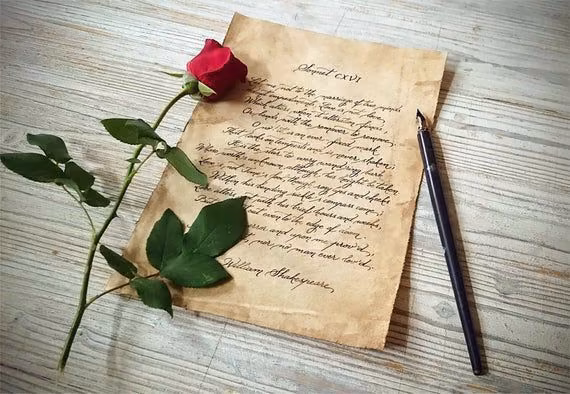 Sonnet CXVI
me not to the marriage of true minds
impediments. Love is not love
Which alters when it alteration finds,
Or bends with the remover to remove.
it is an ever fixed mark,
That looks on tempests and is never shaken;
It is the star to every wandering bark,
Whose worth's unknown, although his height be taken.
Love's not Time's fool, though rosy lips and cheeks
Within his bending sickle's compass come;
Love alters not with his brief hours and weeks,
But bears it out even to the edge of doom.
error and upon me proved,
I never writ, nor no man ever loved.
William Shakespeare